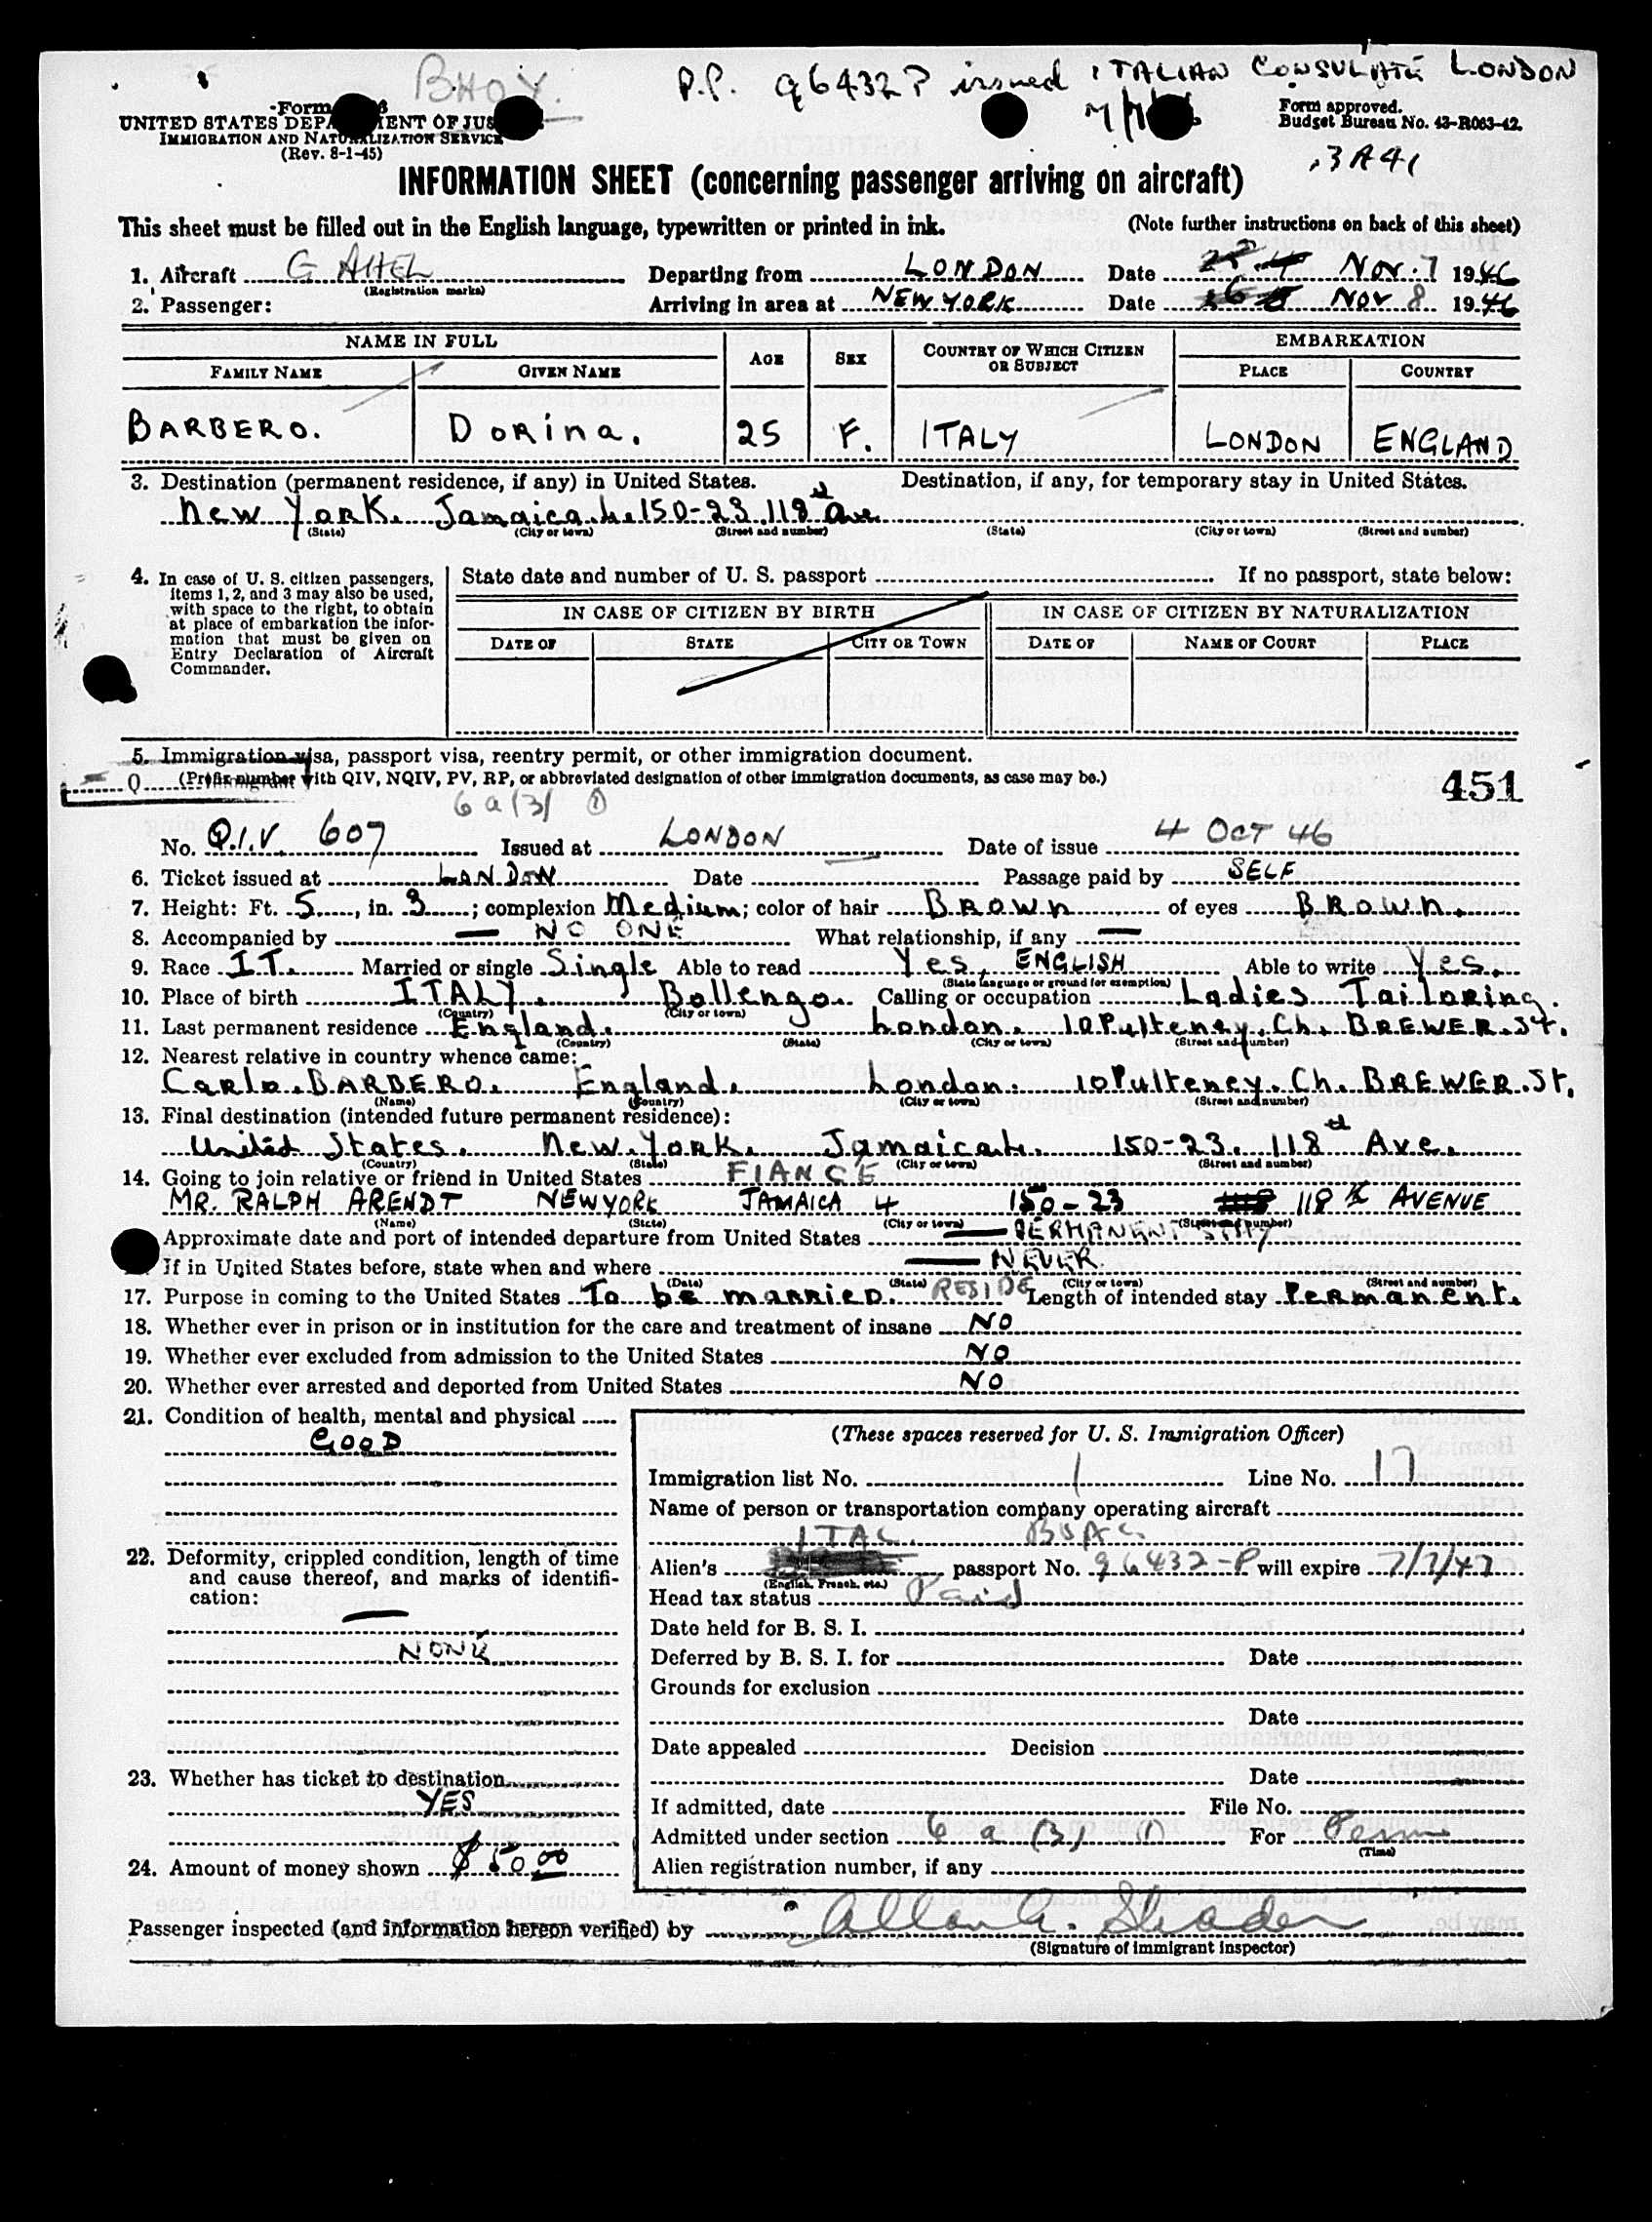 BHOY.
P.P. 96432P issued ITALIAN CONSULATE LONDON
Form
UNITED STATES DEPARTMENT OF JUSTICE
IMMIGRATION AND NATURALIZATION SERVICE
(Rev. 8-1-45)
Form approved.
Budget Bureau No. 43-R063-42.
3A41
INFORMATION SHEET (concerning passenger arriving on aircraft)
This sheet must be filled out in the English language, typewritten or printed in ink. (Note further instructions on back of this sheet)
1. Aircraft G AHEL Departing from LONDON Date Nov. 7 1946
(Registration marks)
2. Passenger: Arriving in area at NEW YORK Date Nov 8 1946
NAME IN FULL AGE SEX COUNTRY OF WHICH CITIZEN OR SUBJECT EMBARKATION
FAMILY NAME GIVEN NAME PLACE COUNTRY
BARBERO. DORina. 25 F. ITALY LONDON ENGLAND
3. Destination (permanent residence, if any) in United States. Destination, if any, for temporary stay in United States.
New York. Jamaica.4. 150-23 118th Ave
(State) (City or town) (Street and number) (State) (City or town) (Street and number)
4. In case of U. S. citizen passengers, items 1, 2, and 3 may also be used, with space to the right, to obtain at place of embarkation the information that must be given on Entry Declaration of Aircraft Commander.
State date and number of U. S. passport If no passport, state below:
IN CASE OF CITIZEN BY BIRTH IN CASE OF CITIZEN BY NATURALIZATION
DATE OF STATE CITY OR TOWN DATE OF NAME OF COURT PLACE
5. Immigration visa, passport visa, reentry permit, or other immigration document.
Q (Prefix number with QIV, NQIV, PV, RP, or abbreviated designation of other immigration documents, as case may be.)
451
6 a (3) ①
No. Q.I.V. 607 Issued at LONDON Date of issue 4 OCT 46
6. Ticket issued at LONDON Date Passage paid by SELF
7. Height: Ft. 5, in. 3; complexion Medium; color of hair BROWN of eyes BROWN.
8. Accompanied by — NO ONE What relationship, if any —
9. Race IT. Married or single Single Able to read Yes, ENGLISH Able to write Yes.
(State language or ground for exemption)
10. Place of birth ITALY. Bollengo. Calling or occupation Ladies Tailoring.
(Country) (City or town)
11. Last permanent residence England. London. 10 Pulteney. Ch. BREWER. St.
(Country) (State) (City or town) (Street and number)
12. Nearest relative in country whence came:
Carlo. BARBERO. England. London. 10 Pulteney. Ch. BREWER. St.
(Name) (Country) (City or town) (Street and number)
13. Final destination (intended future permanent residence):
United States. New York. Jamaica 4. 150-23. 118th Ave.
(Country) (State) (City or town) (Street and number)
14. Going to join relative or friend in United States FIANCE
MR. RALPH ARENDT NEW YORK JAMAICA 4 150-23 118th AVENUE
(Name) (State) (City or town) (Street and number)
Approximate date and port of intended departure from United States — PERMANENT STAY
If in United States before, state when and where — NEVER
(Date) (State) (City or town) (Street and number)
17. Purpose in coming to the United States To be married. RESIDE Length of intended stay Permanent.
18. Whether ever in prison or in institution for the care and treatment of insane NO
19. Whether ever excluded from admission to the United States NO
20. Whether ever arrested and deported from United States NO
21. Condition of health, mental and physical
GOOD
22. Deformity, crippled condition, length of time and cause thereof, and marks of identification:
—
NONE
23. Whether has ticket to destination
YES
24. Amount of money shown $ 50.00
(These spaces reserved for U. S. Immigration Officer)
Immigration list No. 1 Line No. 17
Name of person or transportation company operating aircraft
ITAL. BOAC.
Alien's passport No. 96432-P will expire 7/7/47
(English, French, etc.)
Head tax status Paid
Date held for B. S. I.
Deferred by B. S. I. for Date
Grounds for exclusion
Date
Date appealed Decision
Date
If admitted, date File No.
Admitted under section 6 a (3) (1) For Perm
(Time)
Alien registration number, if any
Passenger inspected (and information hereon verified) by Allan A. Shader
(Signature of immigrant inspector)